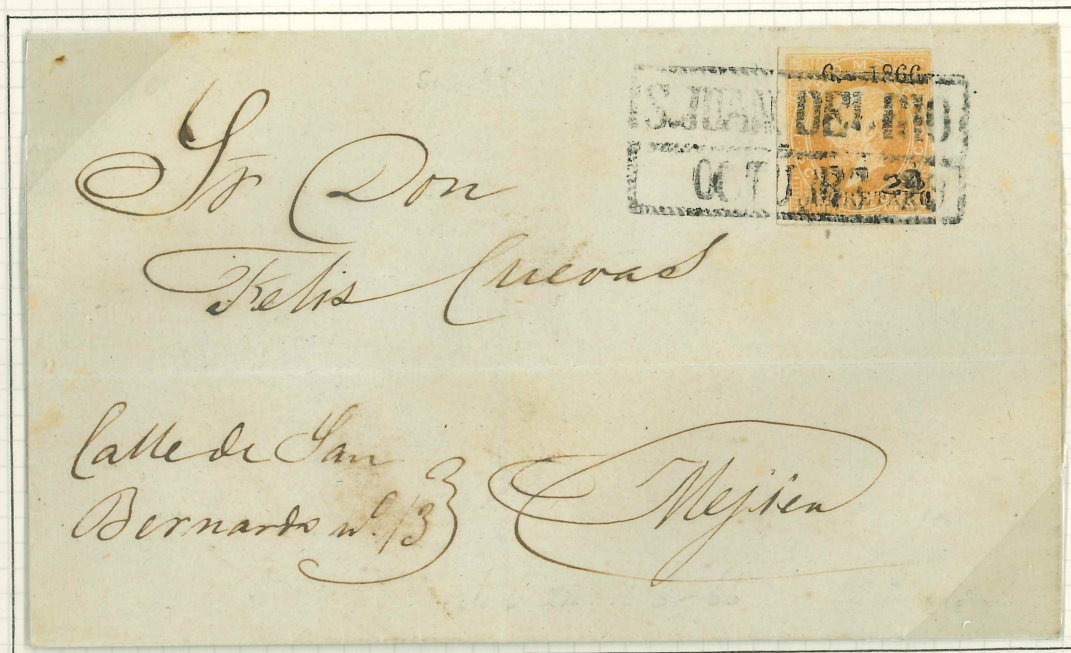 6 - 1866
S. JUAN DEL RIO
OCTUBRE 28
QUERETARO
Sr Don
Felis Cuevas
Calle de San
Bernardo nº 13
Mejico